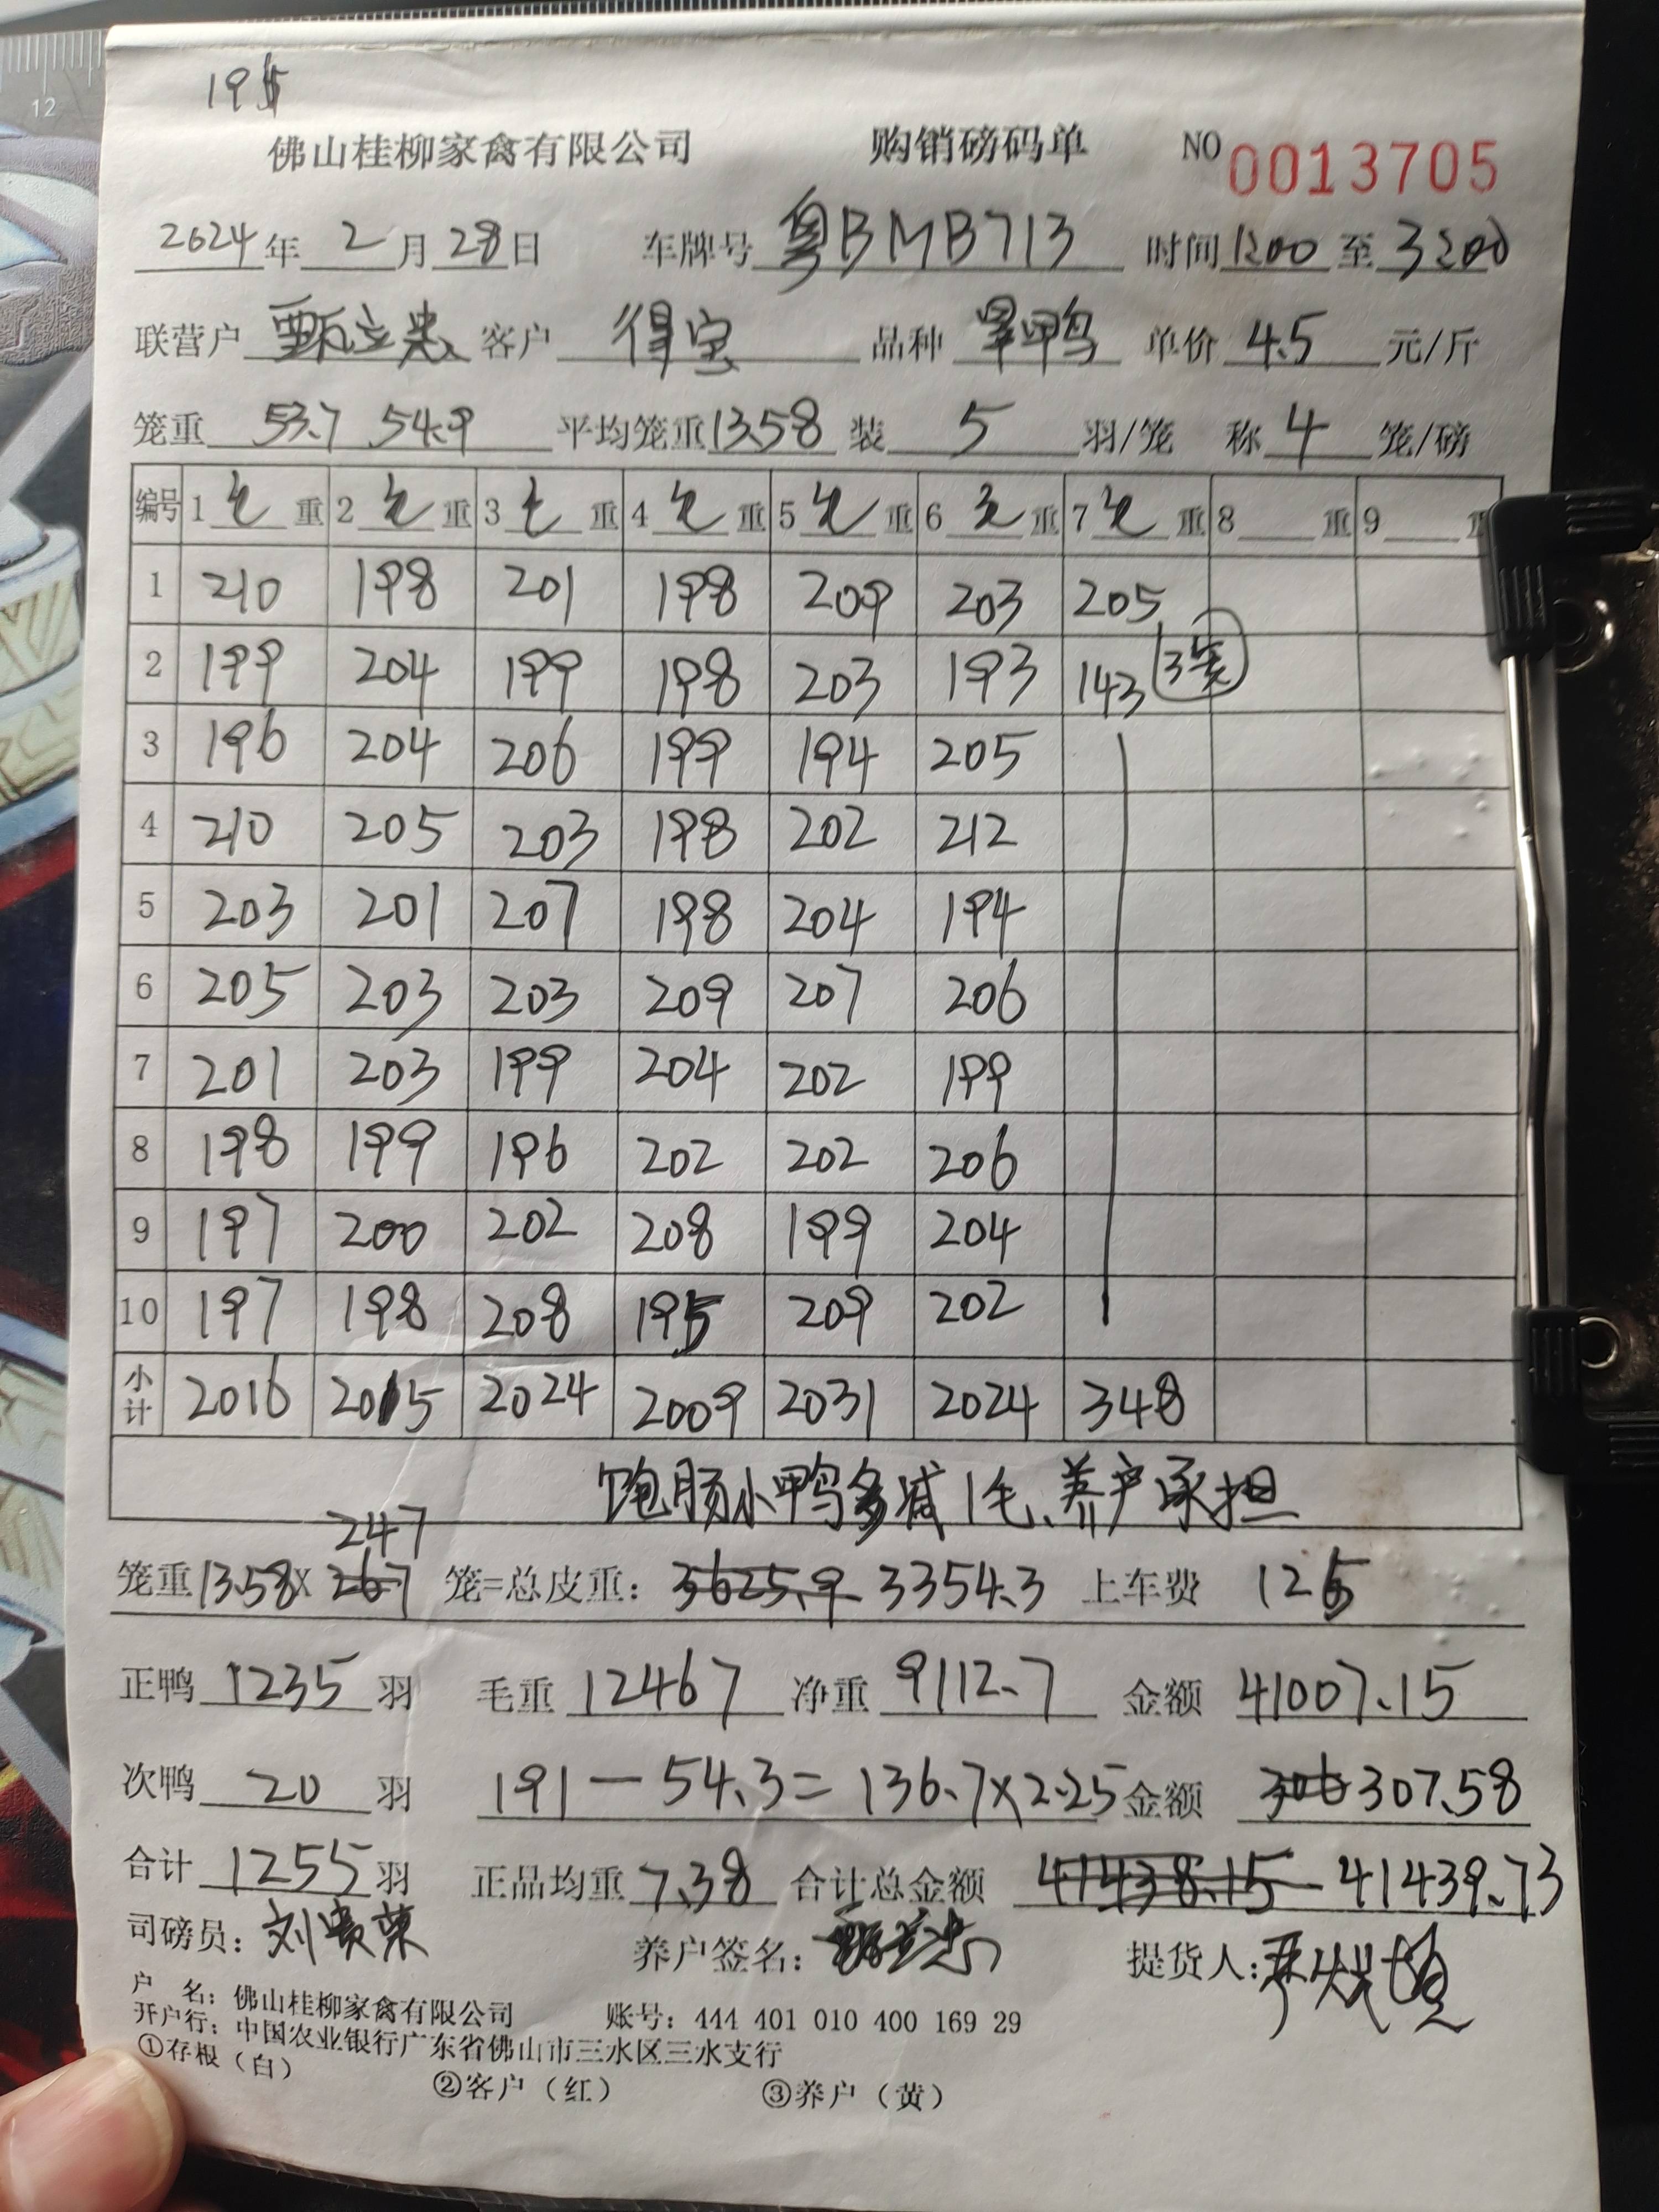 12
195
佛山桂柳家禽有限公司 购销磅码单 NO 0013705
2024年2月28日 车牌号粤BMB713 时间1200至3200
联营户甄立忠 客户得宝 品种旱鸭 单价4.5元/斤
笼重53.7 54.9 平均笼重13.58 装5羽/笼 称4笼/磅
编号 1毛重 2毛重 3毛重 4毛重 5毛重 6毛重 7毛重 8重 9重
1 210 198 201 198 209 203 205
2 199 204 199 198 203 193 143 3笼
3 196 204 206 199 194 205
4 210 205 203 198 202 212
5 203 201 207 198 204 194
6 205 203 203 209 207 206
7 201 203 199 204 202 199
8 198 199 196 202 202 206
9 197 200 202 208 199 204
10 197 198 208 195 209 202
小计 2016 2015 2024 2009 2031 2024 348
饱肠小鸭多减1毛、养户承担
247
笼重13.58X267笼=总皮重:3625.9 3354.3 上车费 125
正鸭1235羽 毛重12467 净重9112.7 金额41007.15
次鸭20羽 191-54.3=136.7×2.25 金额306 307.58
合计1255羽 正品均重7.38 合计总金额41438.15 41439.73
司磅员:刘贵荣 养户签名:甄立忠 提货人:
户 名:佛山桂柳家禽有限公司 账号:444 401 010 400 169 29
开户行:中国农业银行广东省佛山市三水区三水支行
①存根(白) ②客户(红) ③养户(黄)